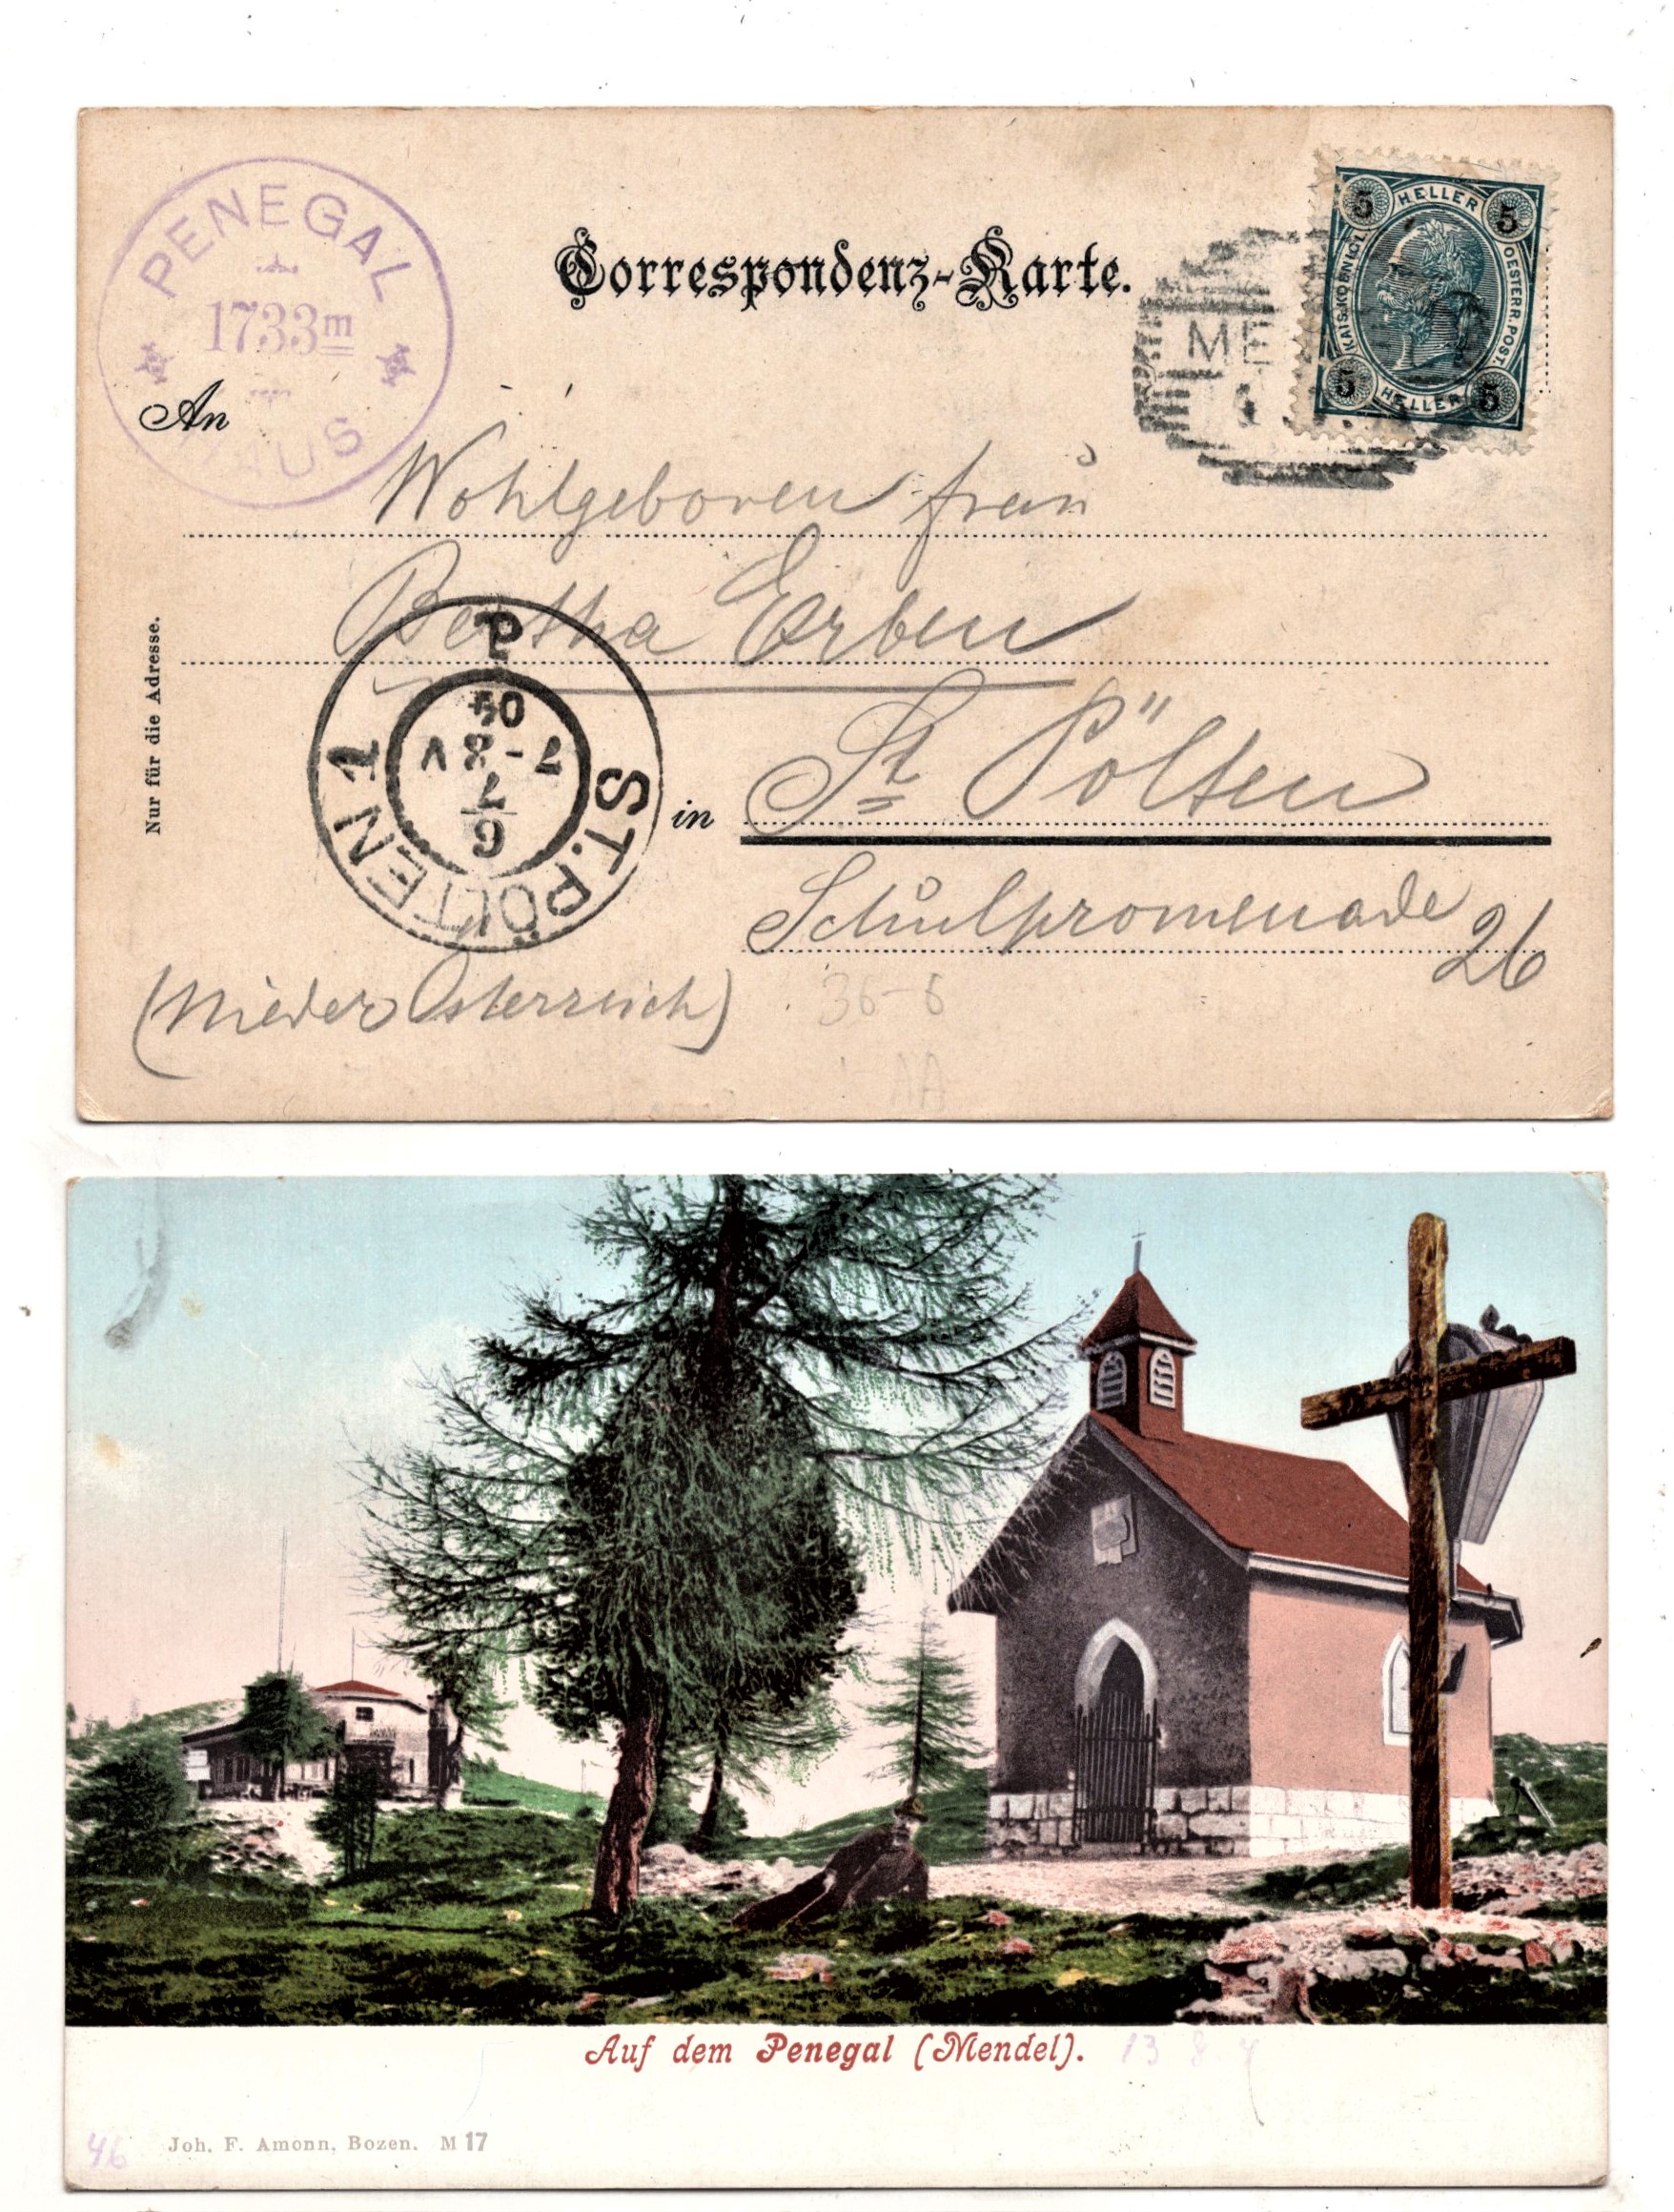 PENEGAL
1733m
AUS
Correspondenz-Karte.
ME
HELLER
KAIS. KOENIGL.
OESTERR. POST.
5 5
5 5
HELLER
An
Wohlgeboren Frau
Bertha Erben
in St Pölten
Schulpromenade 26
(Nieder Österreich)
Nur für die Adresse.
ST. PÖLTEN 1
6
7
7-8V
04
P
36-6
AA
Auf dem Penegal (Mendel).
46
Joh. F. Amonn, Bozen. M 17